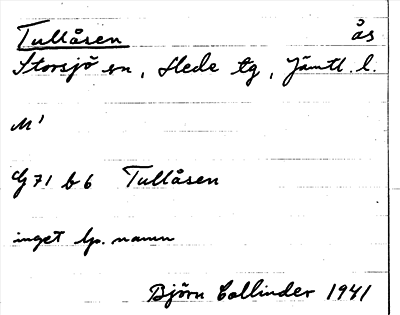 Tullåsen ås
Storsjö sn, Hede tg, Jämtl. l.
M¹
G 71 b 6 Tullåsen
inget lp. namn
Björn Collinder 1941